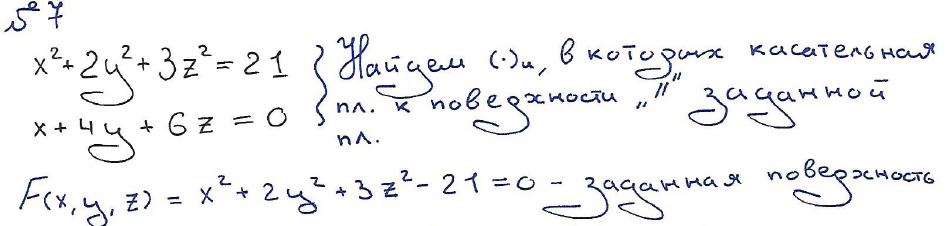 № 7
x² + 2y² + 3z² = 21 } Найдем (·)и, в которых касательная
x + 4y + 6z = 0 } пл. к поверхности „ || " заданной
пл.
F(x, y, z) = x² + 2y² + 3z² - 21 = 0 - заданная поверхность